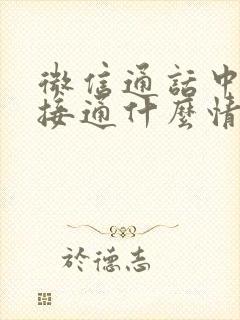 微信通话中
接通什麼情
於德志